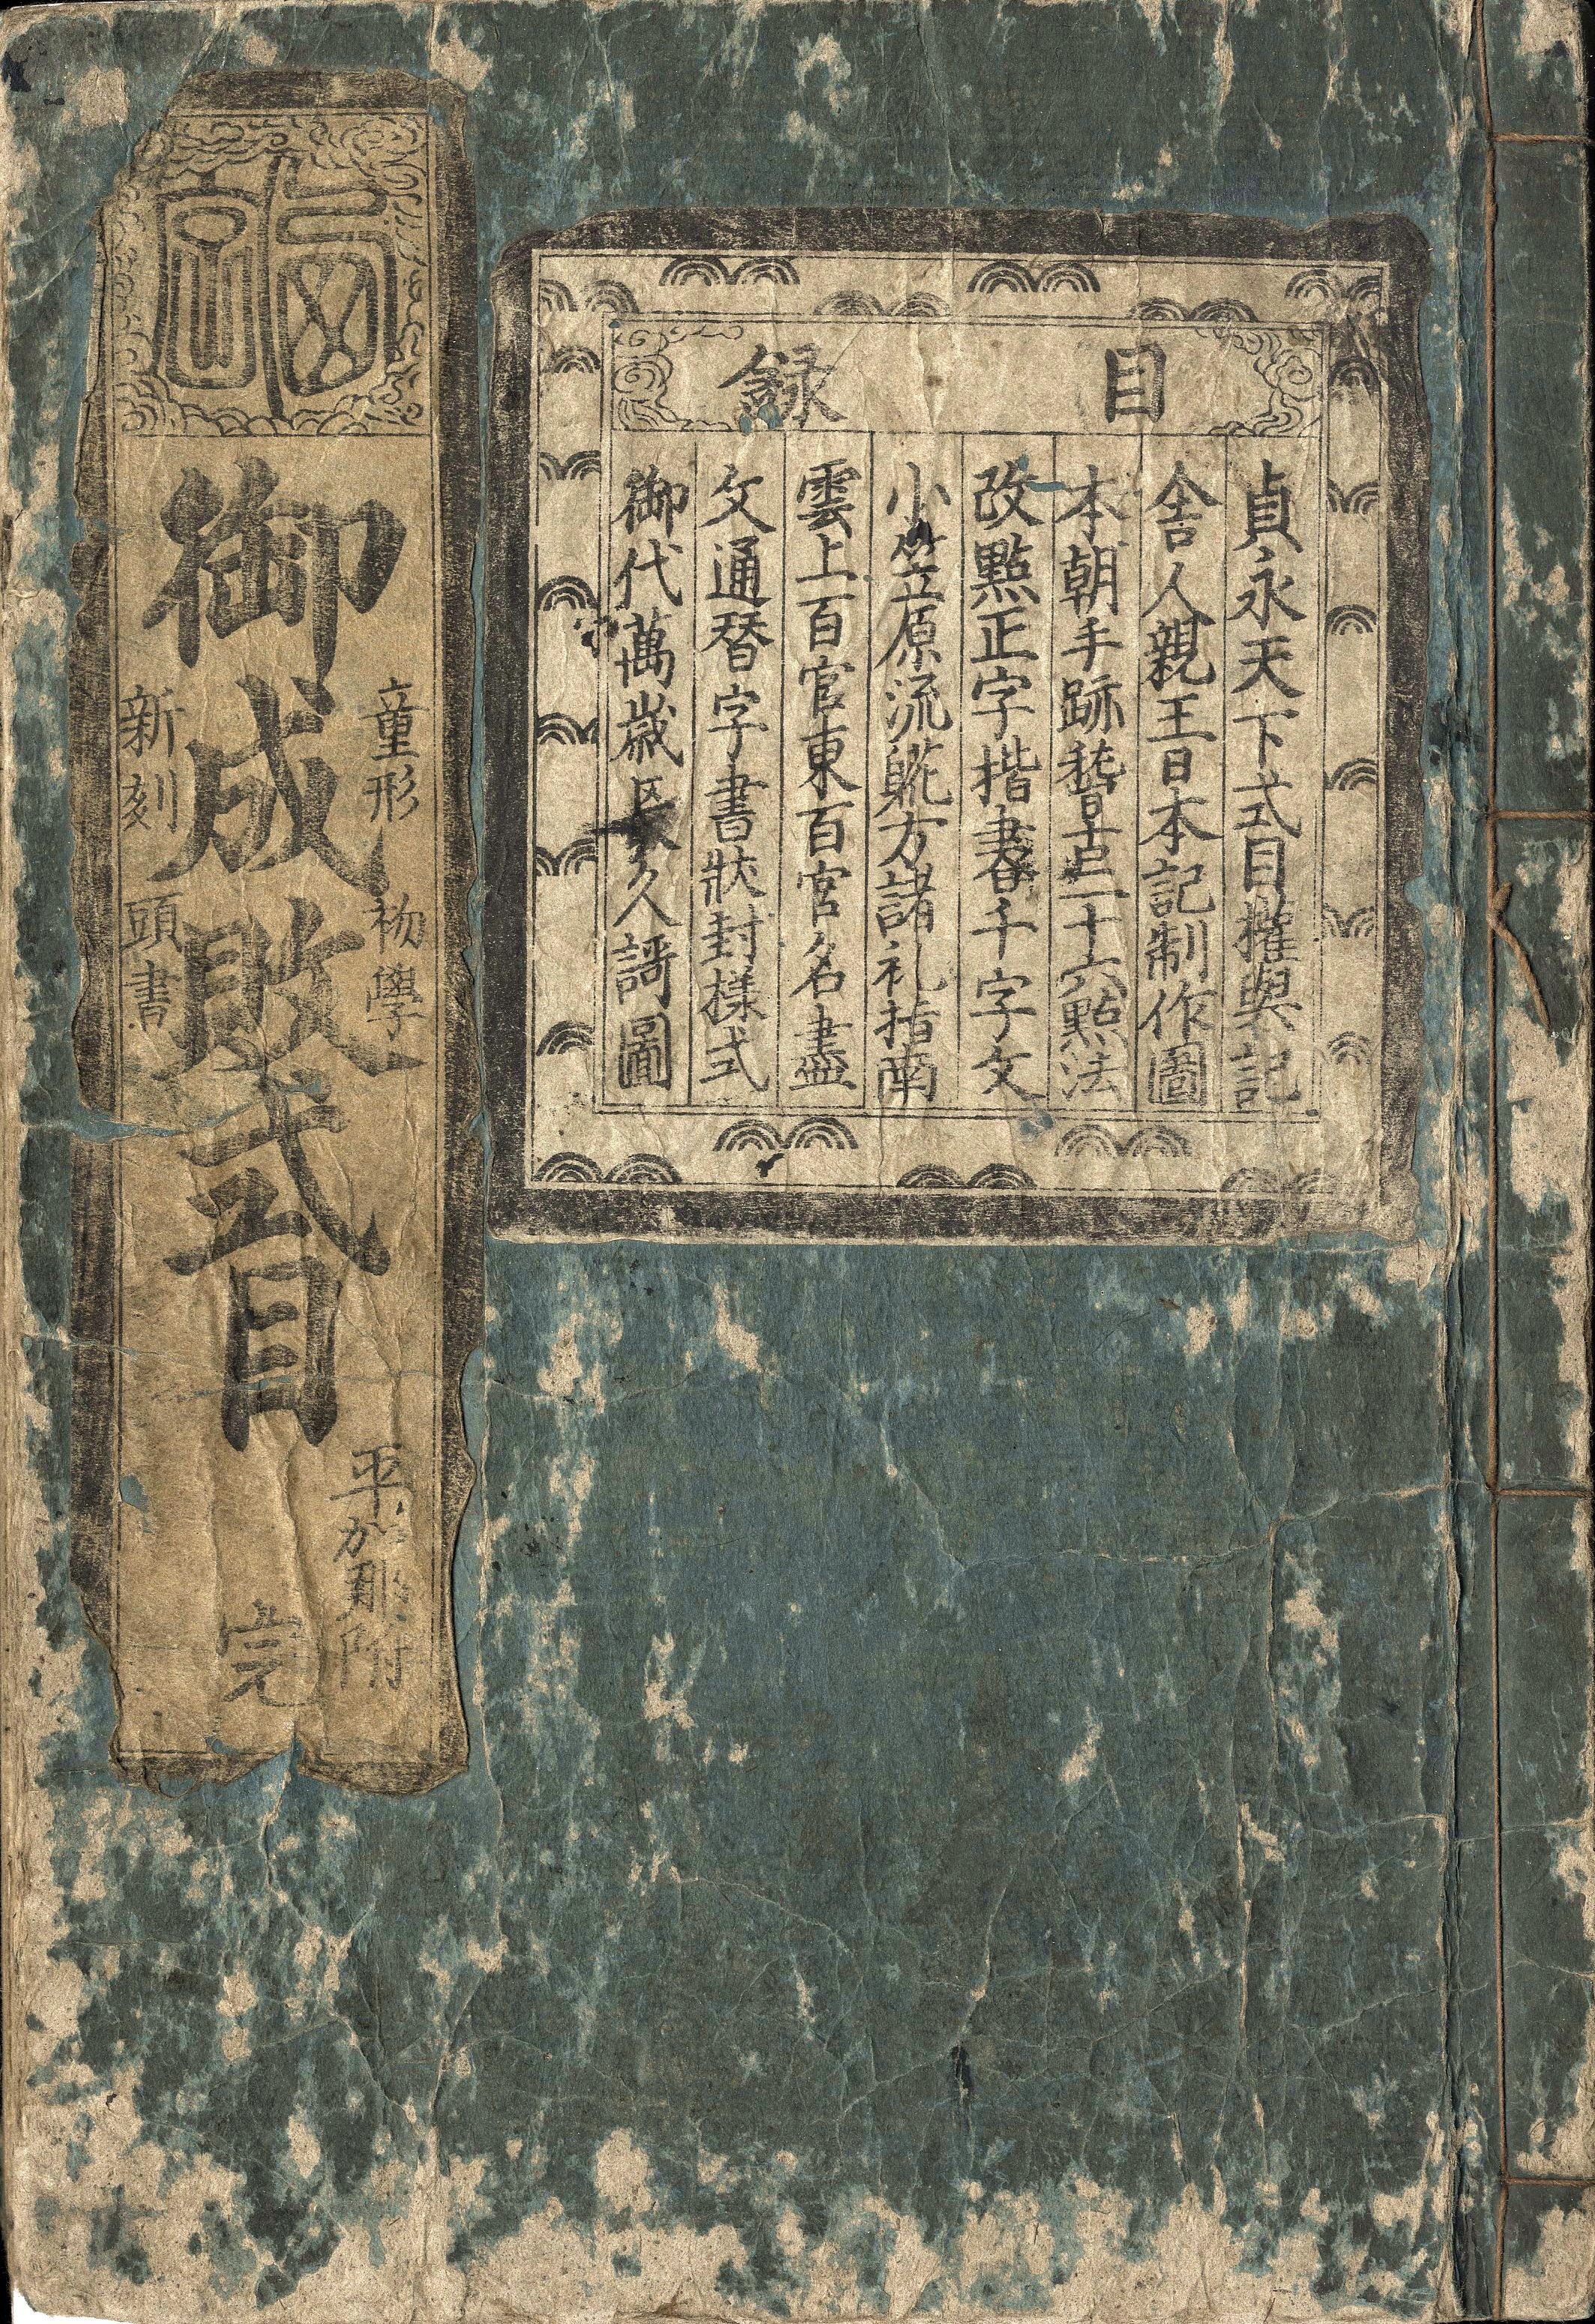 目録
貞永天下式目權輿記
舎人親王日本記制作圖
本朝手跡稽古二十六點法
改點正字楷書千字文
小笠原流躾方諸礼指南
雲上百官東百官名盡
文通替字書狀封様式
御代萬歳長久謌圖
童形初學
御成敗式目
新刻頭書
平加那附
完